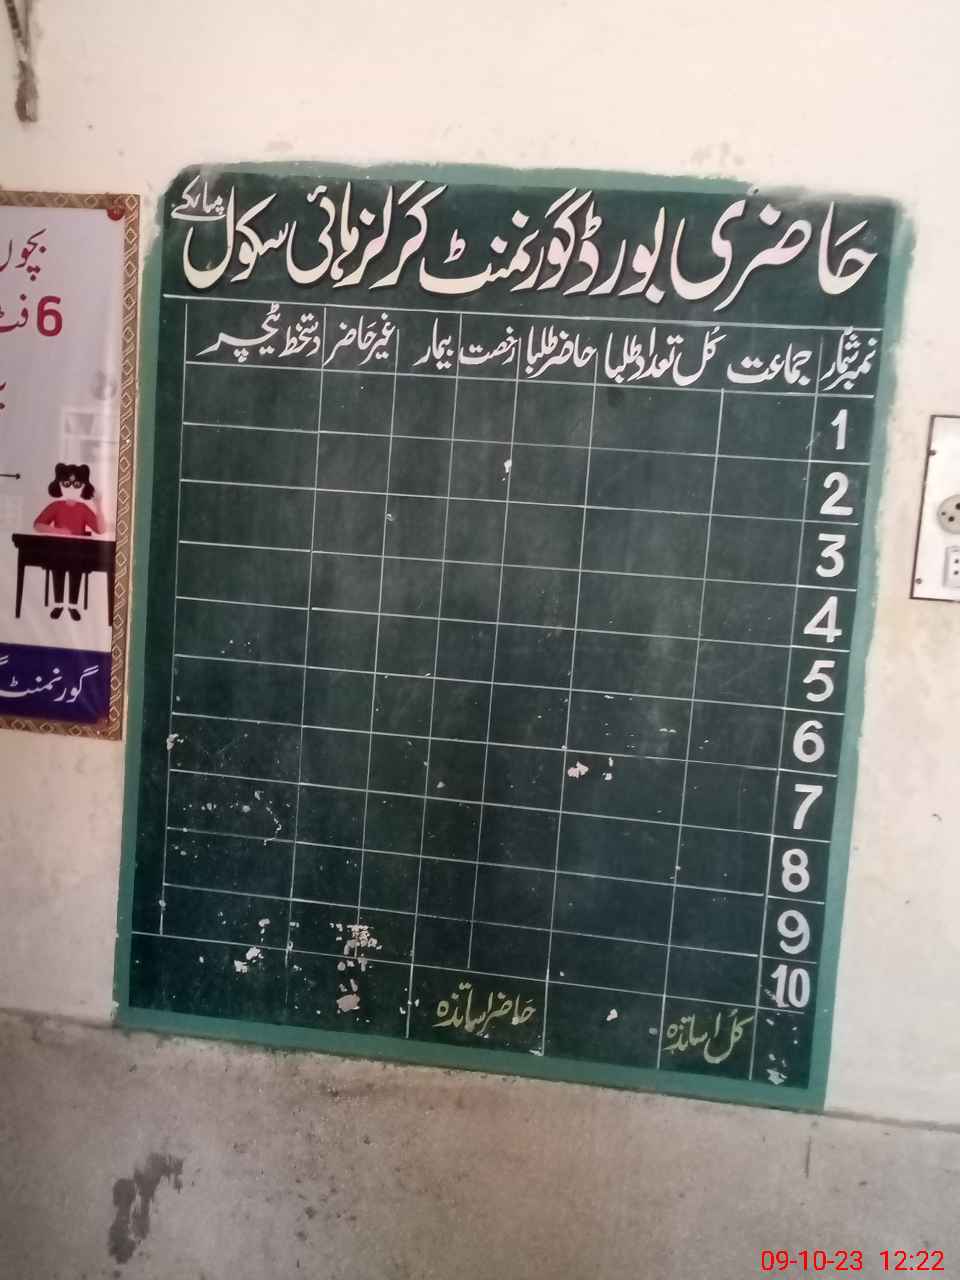 حاضری بورڈ گورنمنٹ گرلز ہائی سکول
نمبر شمار جماعت کل تعداد طلبا حاضر طلبا رخصت بیمار غیر حاضر دستخط ٹیچر
1
2
3
4
5
6
7
8
9
10
کل اساتذہ حاضر اساتذہ
بچوں
6 فٹ
گورنمنٹ
09-10-23 12:22